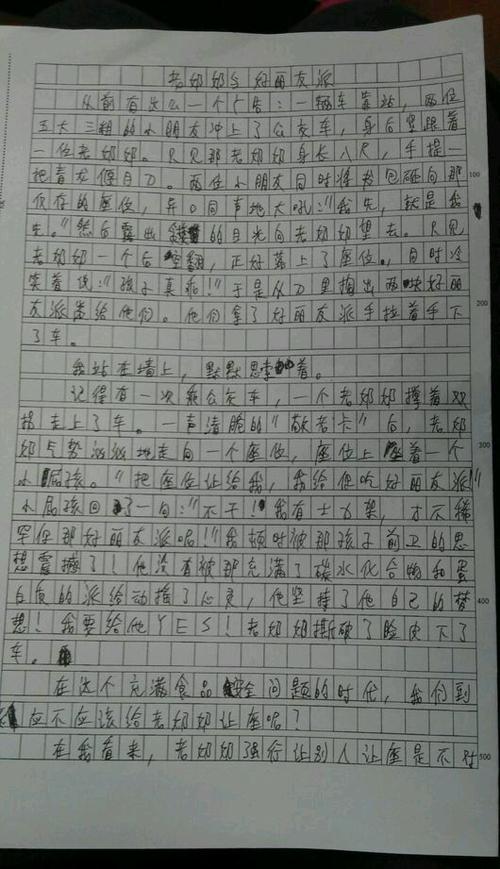 老奶奶与好丽友派
从前有这么一个广告：一辆车靠站，两位
五大三粗的小朋友冲上了公交车，身后紧跟着
一位老奶奶。只见那老奶奶身长八尺，手提一
把青龙偃月刀。两位小朋友同时将书包砸向那
仅存的座位，异口同声地大吼：“我先，就是我
先。”然后露出的目光向老奶奶望去。只见
老奶奶一个后空翻，正好落上了座位。，同时冷
笑着说：“孩子真乖！”于是从刀里掏出两块好丽
友派卖给他们。他们拿了好丽友派手拉着手下
了车。
我站在墙上，默默思考着。
记得有一次乘公交车，一个老奶奶撑着双
拐走上了车。一声清脆的“敬老卡”后，老奶
奶气势汹汹地走向一个座位，座位上坐着一个
小屁孩。“把座位让给我，我给你吃好丽友派”
小屁孩回了一句：“不干！我有士力架，才不稀
罕你那好丽友派呢！”我顿时被那孩子前卫的思
想震撼了！他没有被那充满了碳水化合物和蛋
白质的派给动摇了心灵，他坚持了他自己的梦
想！我要给他YES！老奶奶撕破了脸皮下了
车。
在这个充满食品安全问题的时代，我们到
应不应该给老奶奶让座呢？
在我看来，老奶奶强行让别人让座是不对
100
200
300
400
500